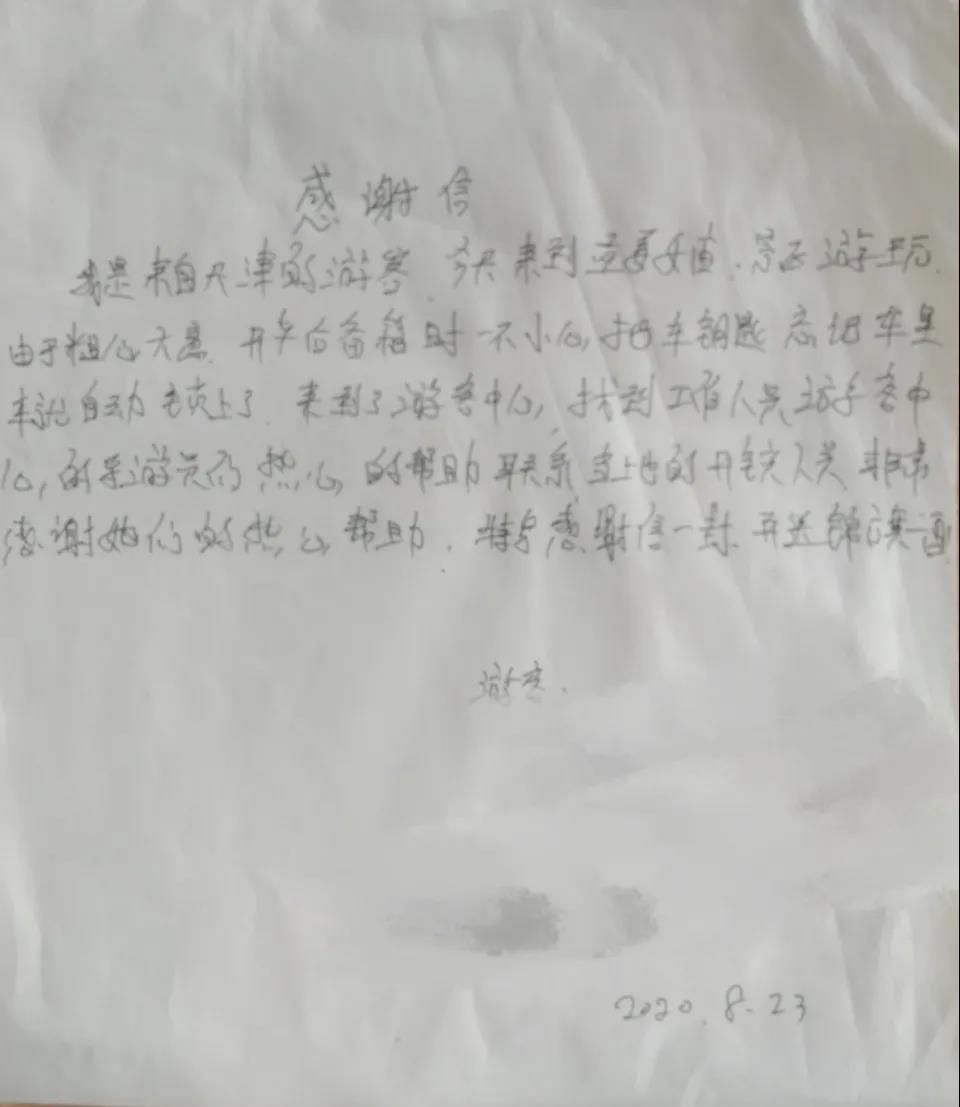 感谢信
我是来自天津的游客. 今天来到 游玩.
由于粗心大意. 开车后备箱时一不小心, 把车钥匙忘记车里
车就自动锁上了. 来到了游客中心, 找到工作人员 游客中
心, 的 热心的帮助联系当地的开锁人员 非常
感谢她们的热心帮助. 特写感谢信一封. 再送锦旗一面
游客.
2020.8.23